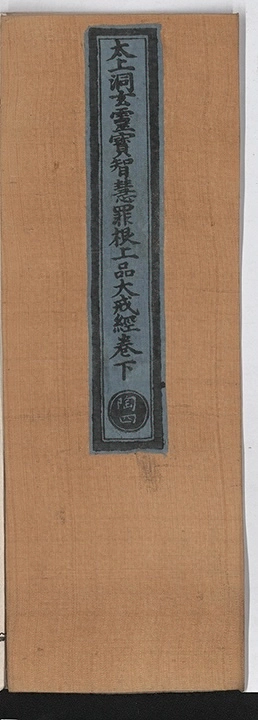 太上洞玄靈寶智慧罪根上品大戒經卷下
陶四